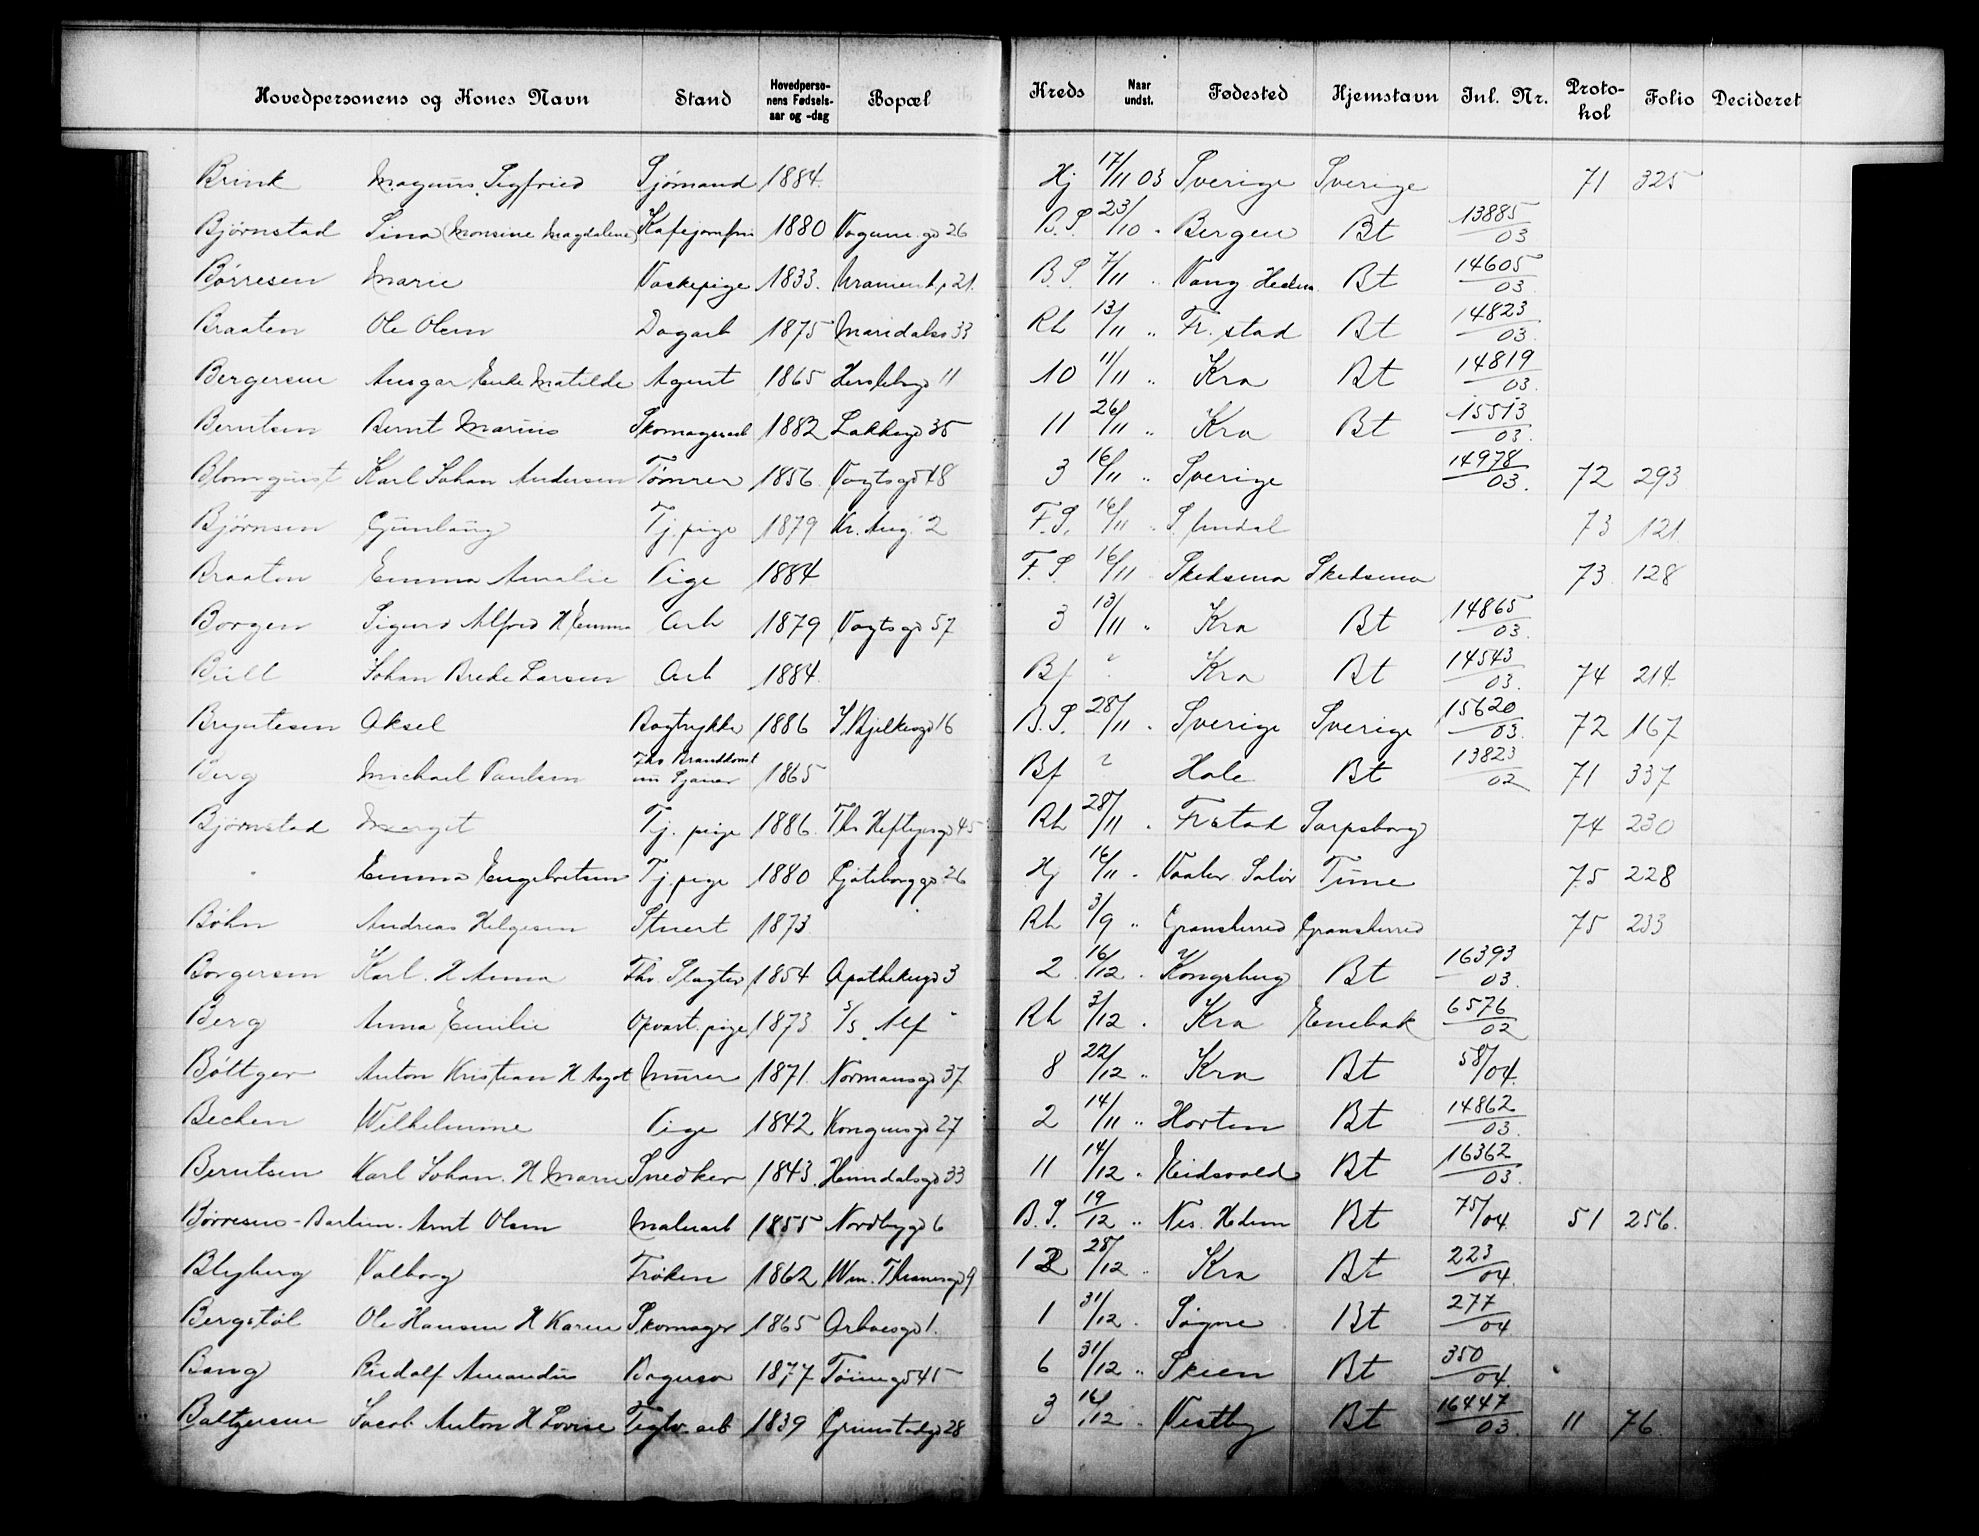 Hovedpersonens og Kones Navn Stand Hovedpersonens Fødselsaar og -dag Bopæl Kreds Naar undst. Fødested Hjemstavn Inl. Nr. Protokol Folio Decideret
Brink Magnus Sigfried Sjømand 1884. Hj 17/11 03 Sverige Sverige 71 325
Bjørnstad Sina (Monsine Magdalene) Kafejomfru 1880 26 B.S. 23/10 " Bergen Bt 13885/03
Børresen Marie Vaskepige 1833. 21. B.S. 7/11 " Vang Hedm. Bt 14605/03.
Braaten Ole Olsen Dagarb 1875 Maridalsv 33 Rh 13/11 " Fr. stad Bt 14823/03.
Bergersen Ansgar Enke Matilde Agent 1865 Herslebsg 11 10 11/11 " Kra Bt 14819/03.
Berntsen Bernt Marius Skomagerarb 1882 Lakkeg 35 11 26/11 " Kra Bt 15513/03.
Blomquist Karl Johan Andersen Tømrer 1856 Vogtsgd 48 3 16/11 " Sverige 14978/03. 72 293
Bjørnsen Gunlaug Tj. pige 1879 Kr. Aug. 2 F.S. 16/11 " 73 121.
Braaten Emma Amalie Pige 1884 F.S. 16/11 Skedsmo Skedsmo 73 128
Borgen Sigurd Alfred H Emma Arb 1879 Vogtsgd 57 3 13/11 " Kra Bt 14865/03.
Büll Johan Brede Larsen Arb 1884. Bf " Kra Bt 14543/03. 74 214.
Bryntesen Aksel Bogtrykker 1886 J. Bjelkesgd 16 B.S. 28/11 " Sverige Sverige 15620/03. 72 167
Berg Michael Paulsen Fhv Brandkonst nu Sjauer 1865 Bf " Hole Bt 13823/02 71 337
Bjørnstad Marget Tj. pige 1886. Ths Heftyesgd 45 Rh 28/11 " Frstad Sarpsborg 74 230
" Emma Engebretsen Tj. pige 1880 Gøteborggd. 26 Hj 16/11 " Vaaler Solør Tune 75 228
Bøhn Andreas Helgesen Stuert 1873. Rh 3/9 " Gransherred Gransherred 75 233
Borgersen Karl. H Anna Fhv. Slagter 1854 Apothekergd 3 2 16/12 " Kongsberg Bt 16393/03.
Berg Anna Emilie Opvart. pige 1873 Rh 3/12 " Kra Enebak 6576/02
Bøttger Anton Kristian H Aagot Murer 1871. Normansgd 37. 8 22/12 " Kra Bt 58/04.
Wilhelmine Pige 1842 Kongensgd 27 2 14/11 " Horten Bt 14862/03.
Berntsen Karl Johan. H Marie Snedker 1843. Heimdalsgd 33 11 14/12 " Eidsvold Bt 16362/03.
Arnt Olsen Malerarb 1855 Nordbygd 6 B.S. 19/12 " Nes. Hedem Bt 75/04 51 256.
Blyberg Valborg Frøken 1862 Wm. Thranesgd 9 12 28/12 " Kra Bt 223/04.
Bergstøl Ole Hansen H Karen Skomager 1865 Arboesgd 1. 1 31/12 " Søgne Bt 277/04
Bang Rudolf Amandus Bogerso 1877 Tøiengd 45 6 31/12 " Skien Bt 350/04.
Baltzersen Jacob Anton H Lovise Teglv. arb 1839 Grimstadgd 28 3 16/12 " Vestby Bt 16447/03. 11 76.